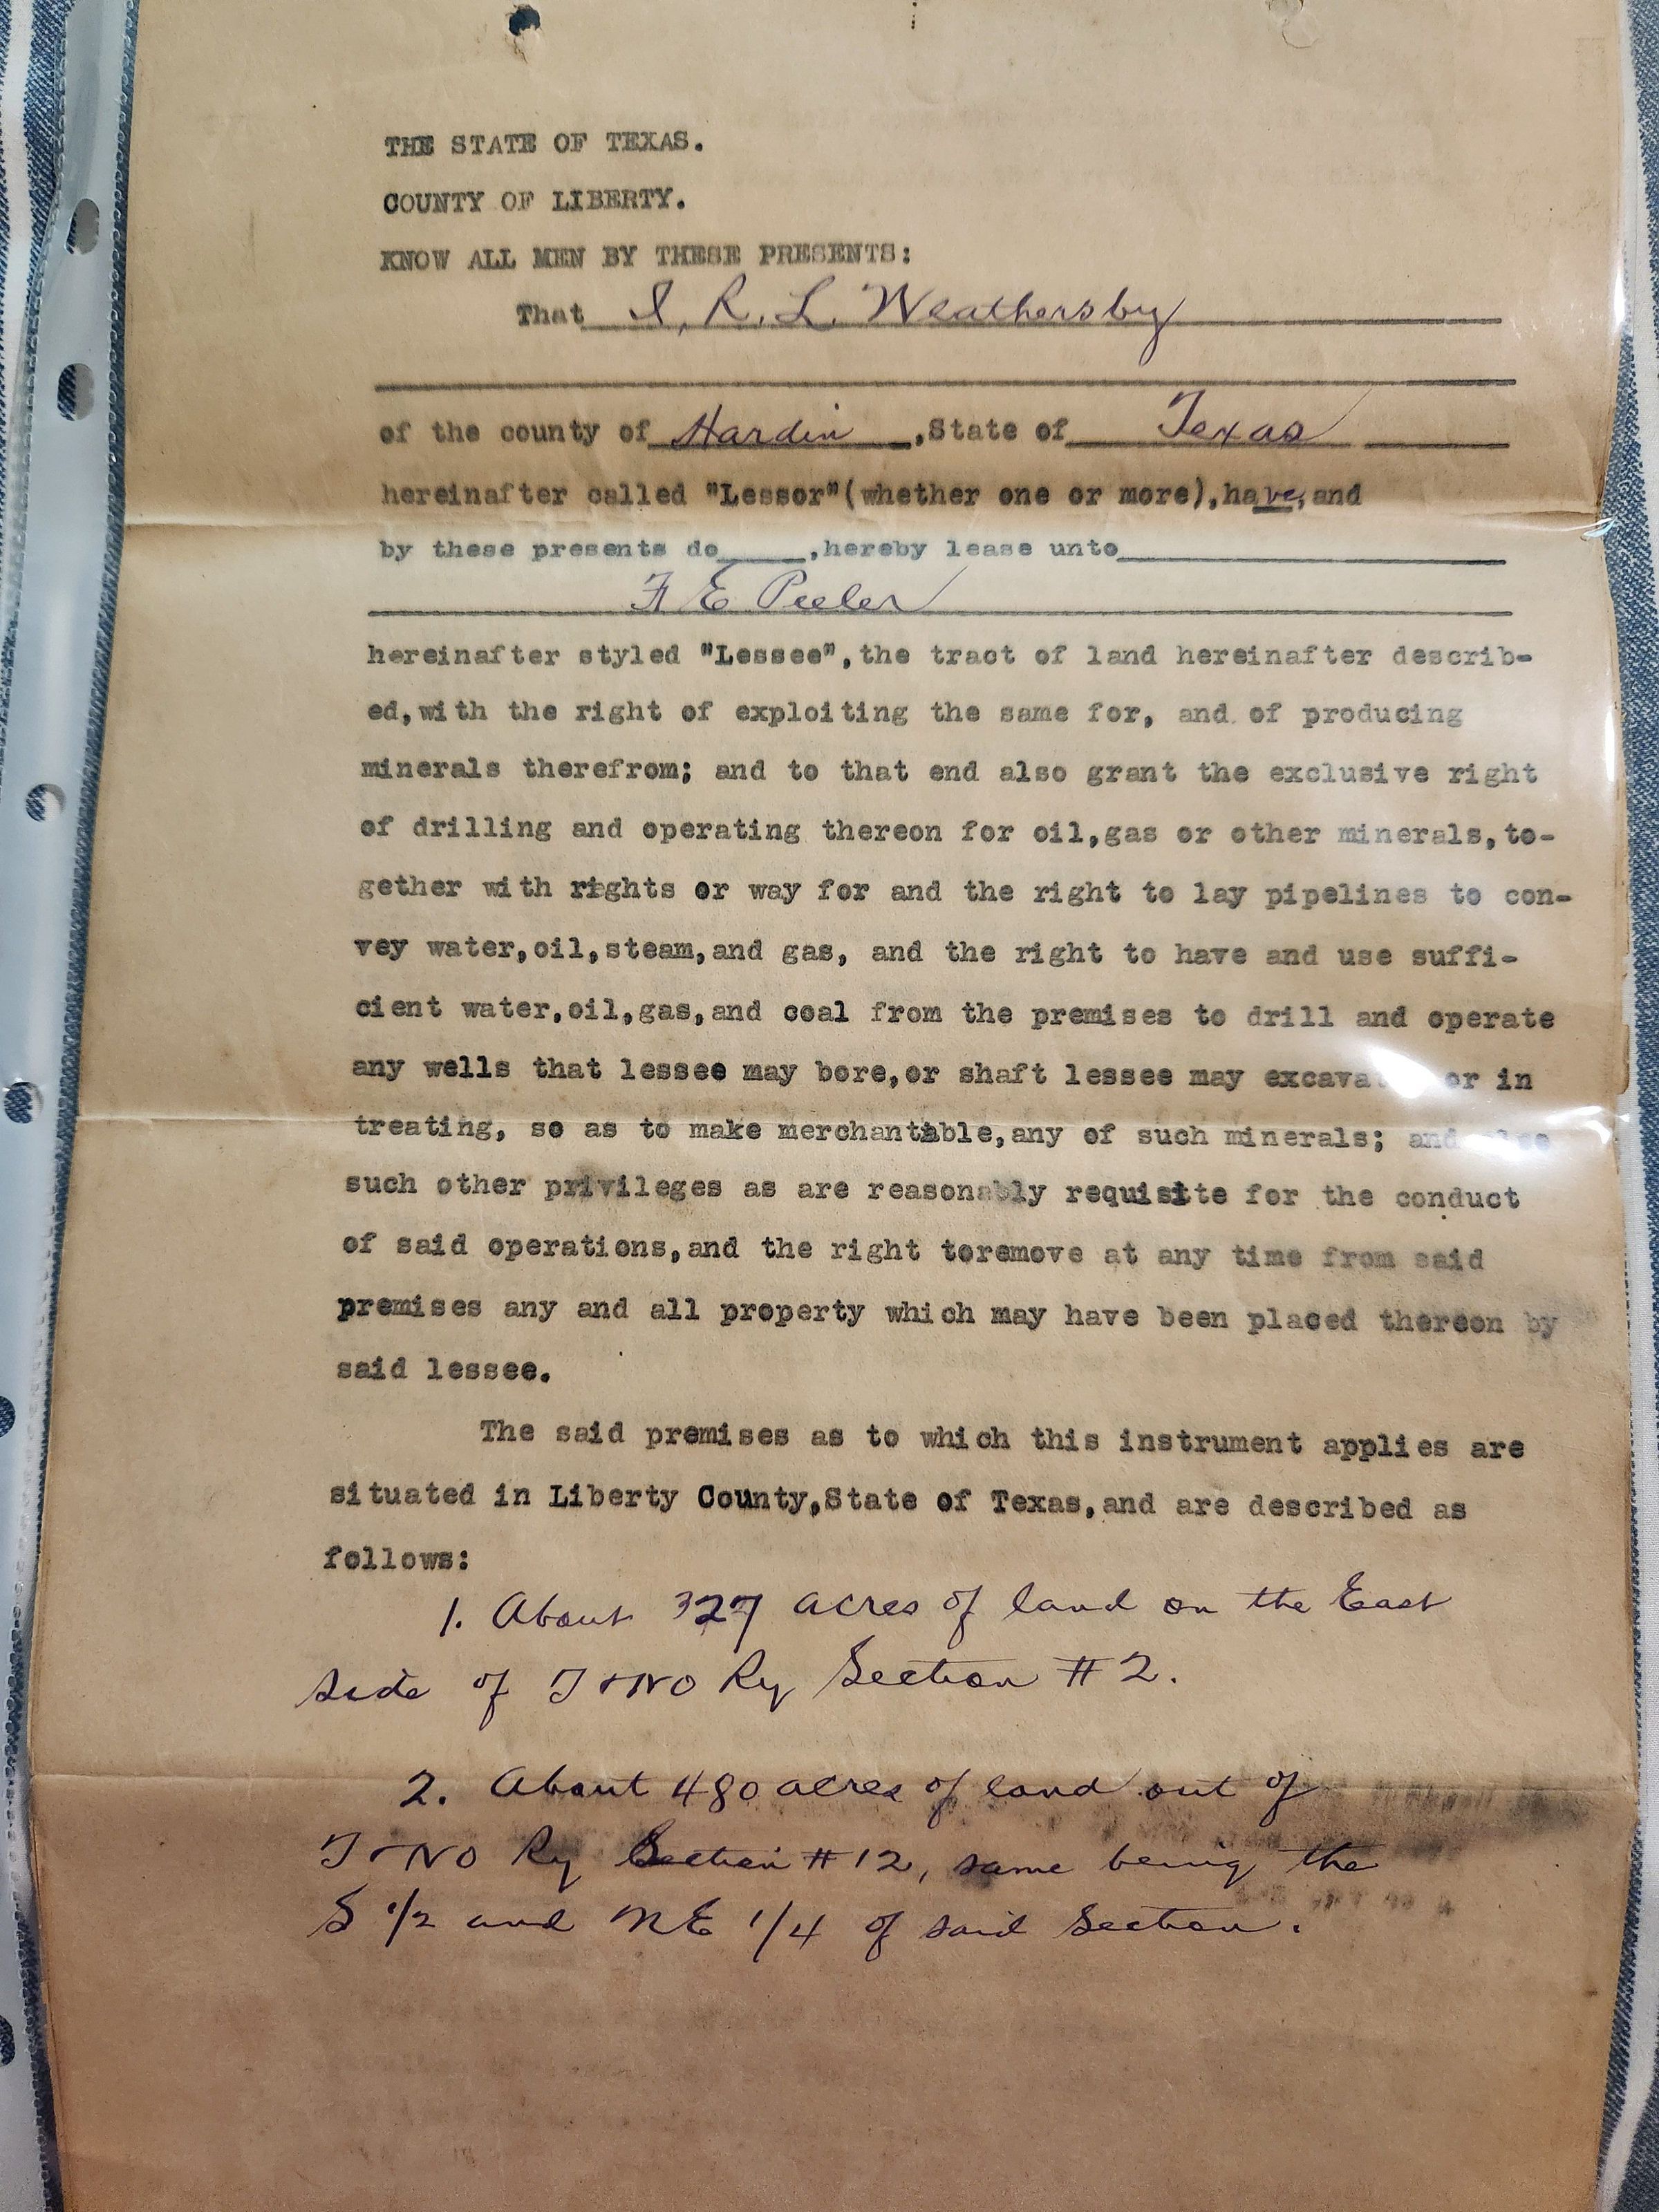 THE STATE OF TEXAS.
COUNTY OF LIBERTY.
KNOW ALL MEN BY THESE PRESENTS:
That I, R. L. Weathersby
of the county of Hardin ,State of Texas
hereinafter called "Lessor"(whether one or more),have,and
by these presents do ,hereby lease unto
F E Peeler
hereinafter styled "Lessee",the tract of land hereinafter describ-
ed,with the right of exploiting the same for, and of producing
minerals therefrom; and to that end also grant the exclusive right
of drilling and operating thereon for oil,gas or other minerals,to-
gether with rights or way for and the right to lay pipelines to con-
vey water,oil,steam,and gas, and the right to have and use suffi-
cient water,oil,gas,and coal from the premises to drill and operate
any wells that lessee may bore,or shaft lessee may or in
treating, so as to make merchantable,any of such minerals; and
such other privileges as are reasonably requisite for the conduct
of said operations,and the right toremove at any time from said
premises any and all property which may have been placed thereon by
said lessee.
The said premises as to which this instrument applies are
situated in Liberty County,State of Texas,and are described as
follows:
1. About 327 acres of land on the East
side of T & NO Ry Section # 2.
2. About 480 acres of land out of
T & NO Ry Section # 12, same being the
S 1/2 and NE 1/4 of said Section.